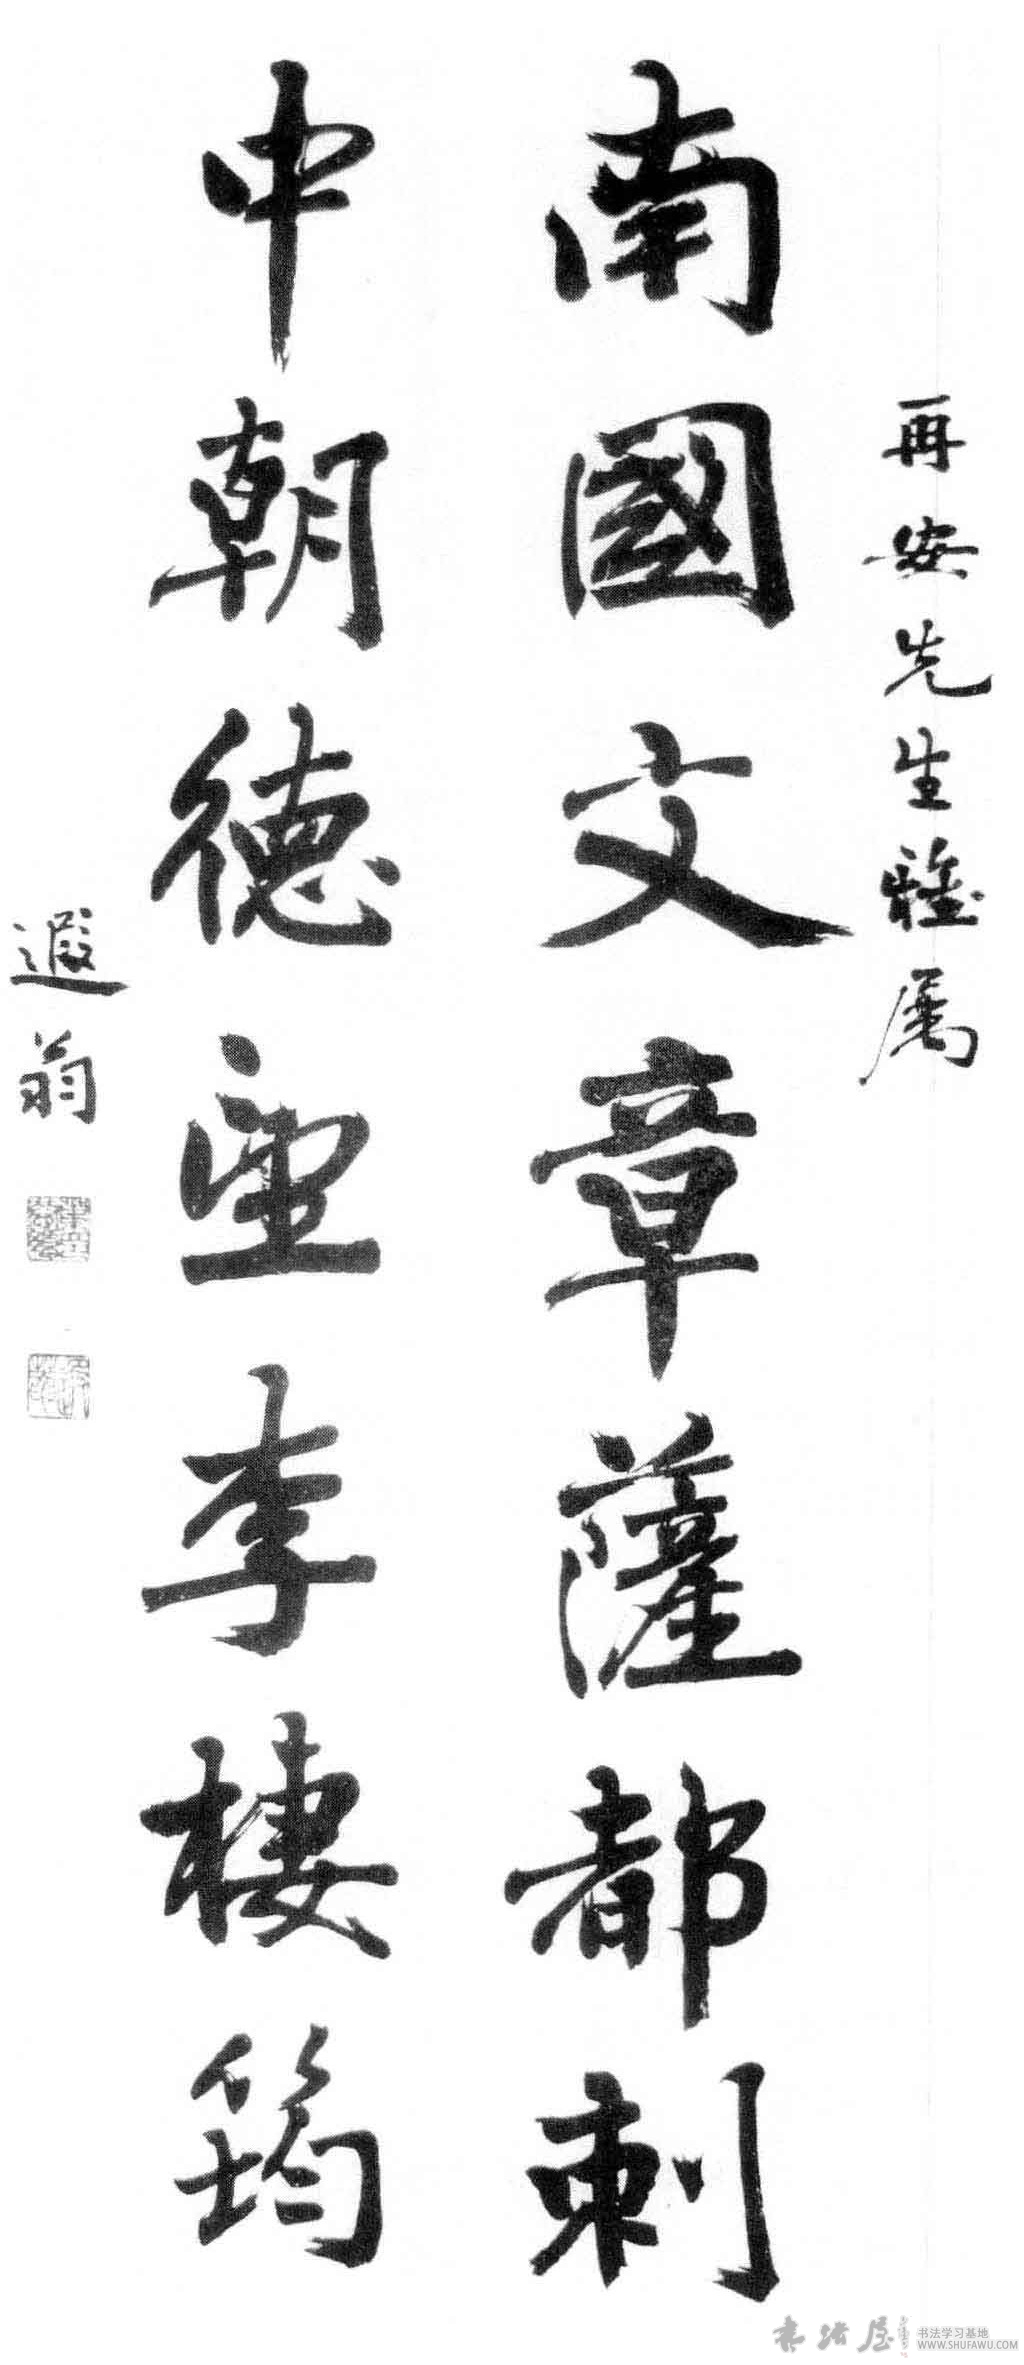 再安先生雅属
南國文章薩都剌
中朝德望李棲筠
遐翁
书法屋
书法学习基地
WWW.SHUFAWU.COM